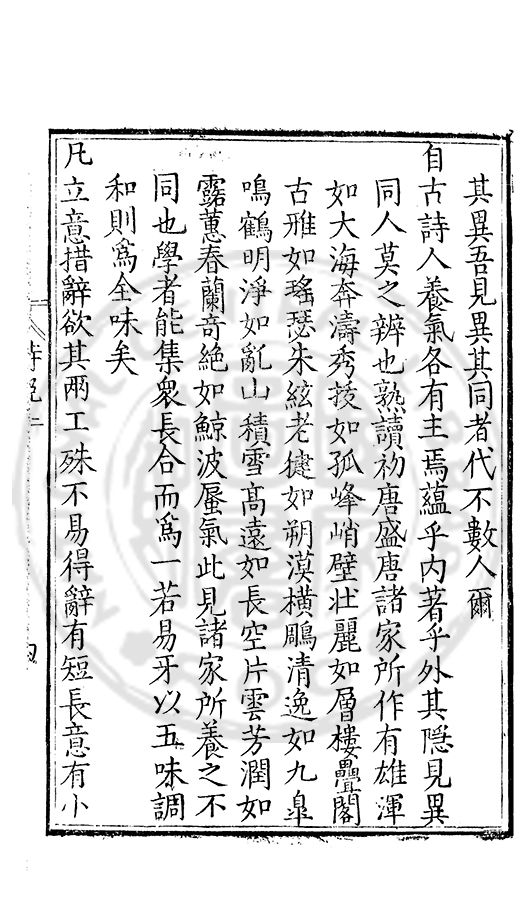 其異吾見異其同者代不數人爾
自古詩人養氣各有主焉蘊乎內著乎外其隱見異
同人莫之辨也熟讀初唐盛唐諸家所作有雄渾
如大海奔濤秀拔如孤峰峭壁壯麗如層樓疊閣
古雅如瑤瑟朱絃老健如朔漠橫鵰清逸如九臯
鳴鶴明淨如亂山積雪高遠如長空片雲芳潤如
露蕙春蘭奇絕如鯨波蜃氣此見諸家所養之不
同也學者能集衆長合而爲一若易牙以五味調
和則爲全味矣
凡立意措辭欲其兩工殊不易得辭有短長意有小